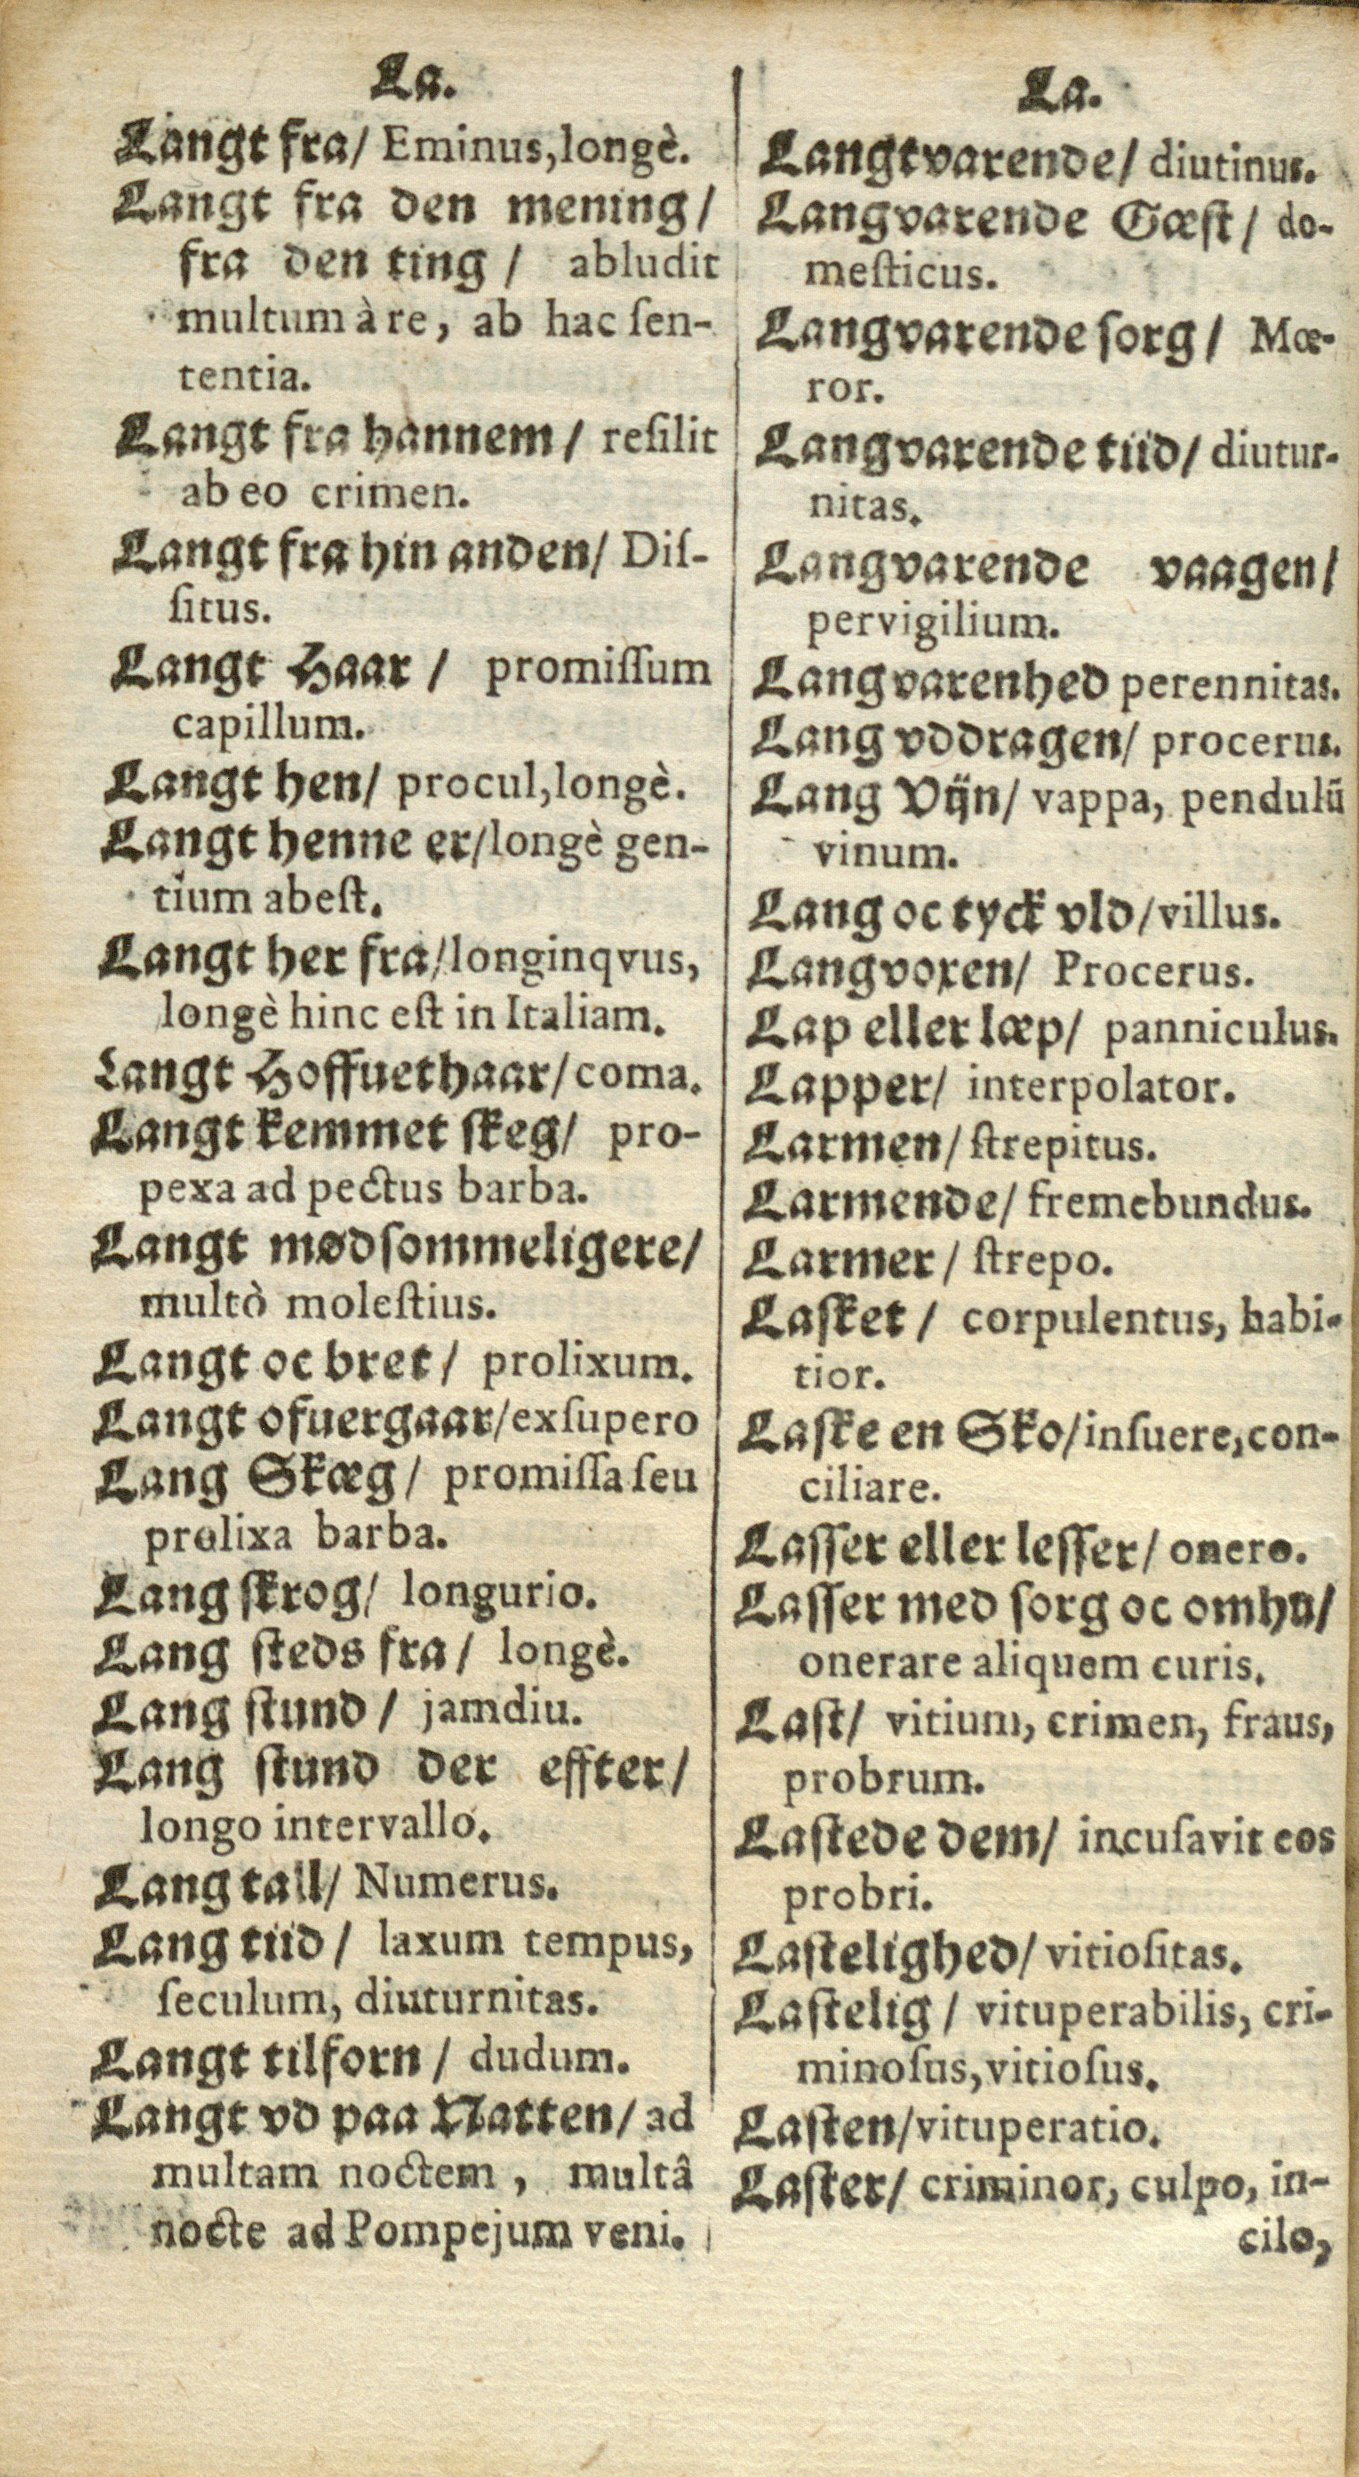 La.
Langt fra/ Eminus, longè.
Langt fra den mening/
fra den ting / abludit
multum à re, ab hac ſen-
tentia.
Langt fra hannem / reſilit
ab eo crimen.
Langt fra hin anden/ Diſ-
ſitus.
Langt Haar / promiſſum
capillum.
Langt hen/ procul, longè.
Langt henne er/longè gen-
tium abeſt.
Langt her fra/longinqvus,
longè hinc eſt in Italiam.
Langt Hoffuethaar/coma.
Langt kemmet ſkeg/ pro-
pexa ad pectus barba.
Langt mødſommeligere/
multò moleſtius.
Langt oc bret / prolixum.
Langt ofuergaar/exſupero
Lang Skæg/ promiſſa ſeu
prolixa barba.
Lang ſkrog/ longurio.
Lang ſteds fra / longè.
Lang ſtund / jamdiu.
Lang ſtund der effter/
longo intervallo.
Lang tall/ Numerus.
Lang tiid / laxum tempus,
ſeculum, diuturnitas.
Langt tilforn / dudum.
Langt vd paa Natten/ ad
multam noctem , multâ
nocte ad Pompejum veni.
La.
Langtvarende/ diutinus.
Langvarende Gæſt / do-
meſticus.
Langvarende ſorg / Mœ-
ror.
Langvarende tiid/ diutur-
nitas.
Langvarende vaagen/
pervigilium.
Langvarenhed perennitas.
Lang vddragen/ procerus.
Lang Vijn/ vappa, pendulū
vinum.
Lang oc tyck vld/villus.
Langvoxen/ Procerus.
Lap eller læp/ panniculus.
Lapper/ interpolator.
Larmen/ ſtrepitus.
Larmende/ fremebundus.
Larmer / ſtrepo.
Laſket / corpulentus, habi-
tior.
Laſke en Sko/inſuere, con-
ciliare.
Laſſer eller leſſer/ onero.
Laſſer med ſorg oc omhu/
onerare aliquem curis.
Laſt/ vitium, crimen, fraus,
probrum.
Laſtede dem/ incuſavit eos
probri.
Laſtelighed/ vitioſitas.
Laſtelig / vituperabilis, cri-
minoſus, vitioſus.
Laſten/vituperatio.
Laſter/ criminor, culpo, in-
cilo,